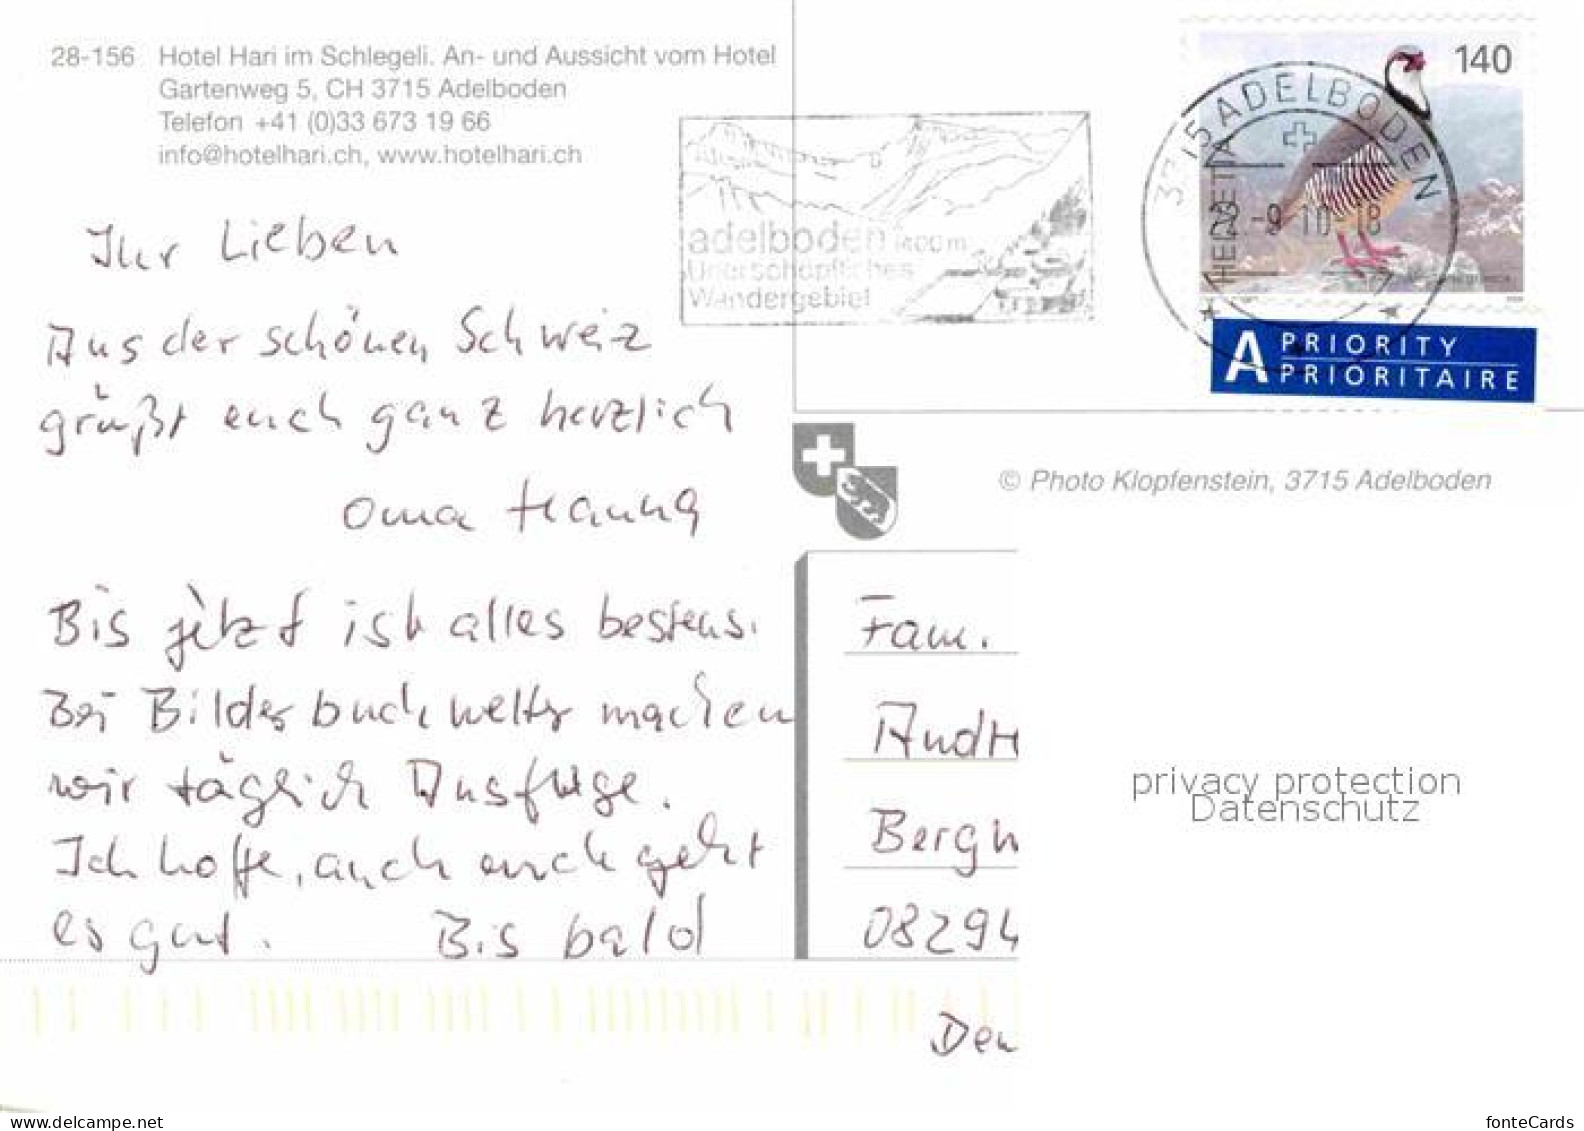 28-156 Hotel Hari im Schlegeli. An- und Aussicht vom Hotel
Gartenweg 5, CH 3715 Adelboden
Telefon +41 (0)33 673 19 66
info@hotelhari.ch, www.hotelhari.ch
Ihr Lieben
Aus der schönen Schweiz
grüßt euch ganz herzlich
Oma Hanna
Bis jetzt ist alles bestens.
Bei Bilderbuchwetter machen
wir täglich Ausflüge.
Ich hoffe, auch euch geht
es gut. Bis bald
adelboden 1400 m
Unerschöpfliches
Wandergebiet
3715 ADELBODEN
HELVETIA
22.-9 10-18
140
A PRIORITY
PRIORITAIRE
© Photo Klopfenstein, 3715 Adelboden
Fam.
Andr
Berg
08294
Den
privacy protection
Datenschutz
www.delcampe.net
fonteCards